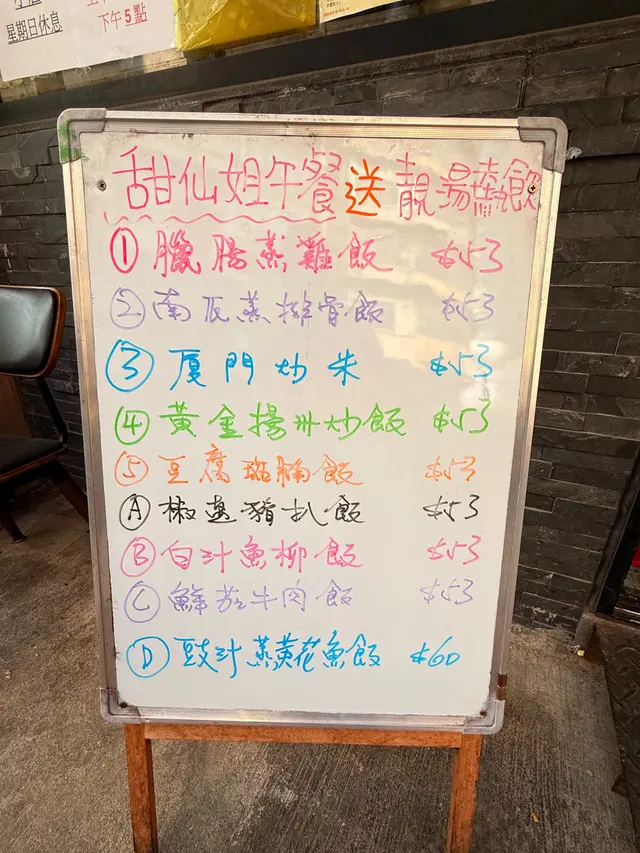 星期日休息
下午5點
甜仙姐午餐送靚湯熱飲
① 臘腸蒸雞飯 $53
② 南瓜蒸排骨飯 $53
③ 廈門炒米 $53
④ 黃金揚州炒飯 $53
⑤ 豆腐斑腩飯 $53
Ⓐ 椒鹽豬扒飯 $53
Ⓑ 白汁魚柳飯 $53
Ⓒ 鮮茄牛肉飯 $53
Ⓓ 豉汁蒸黃花魚飯 $60